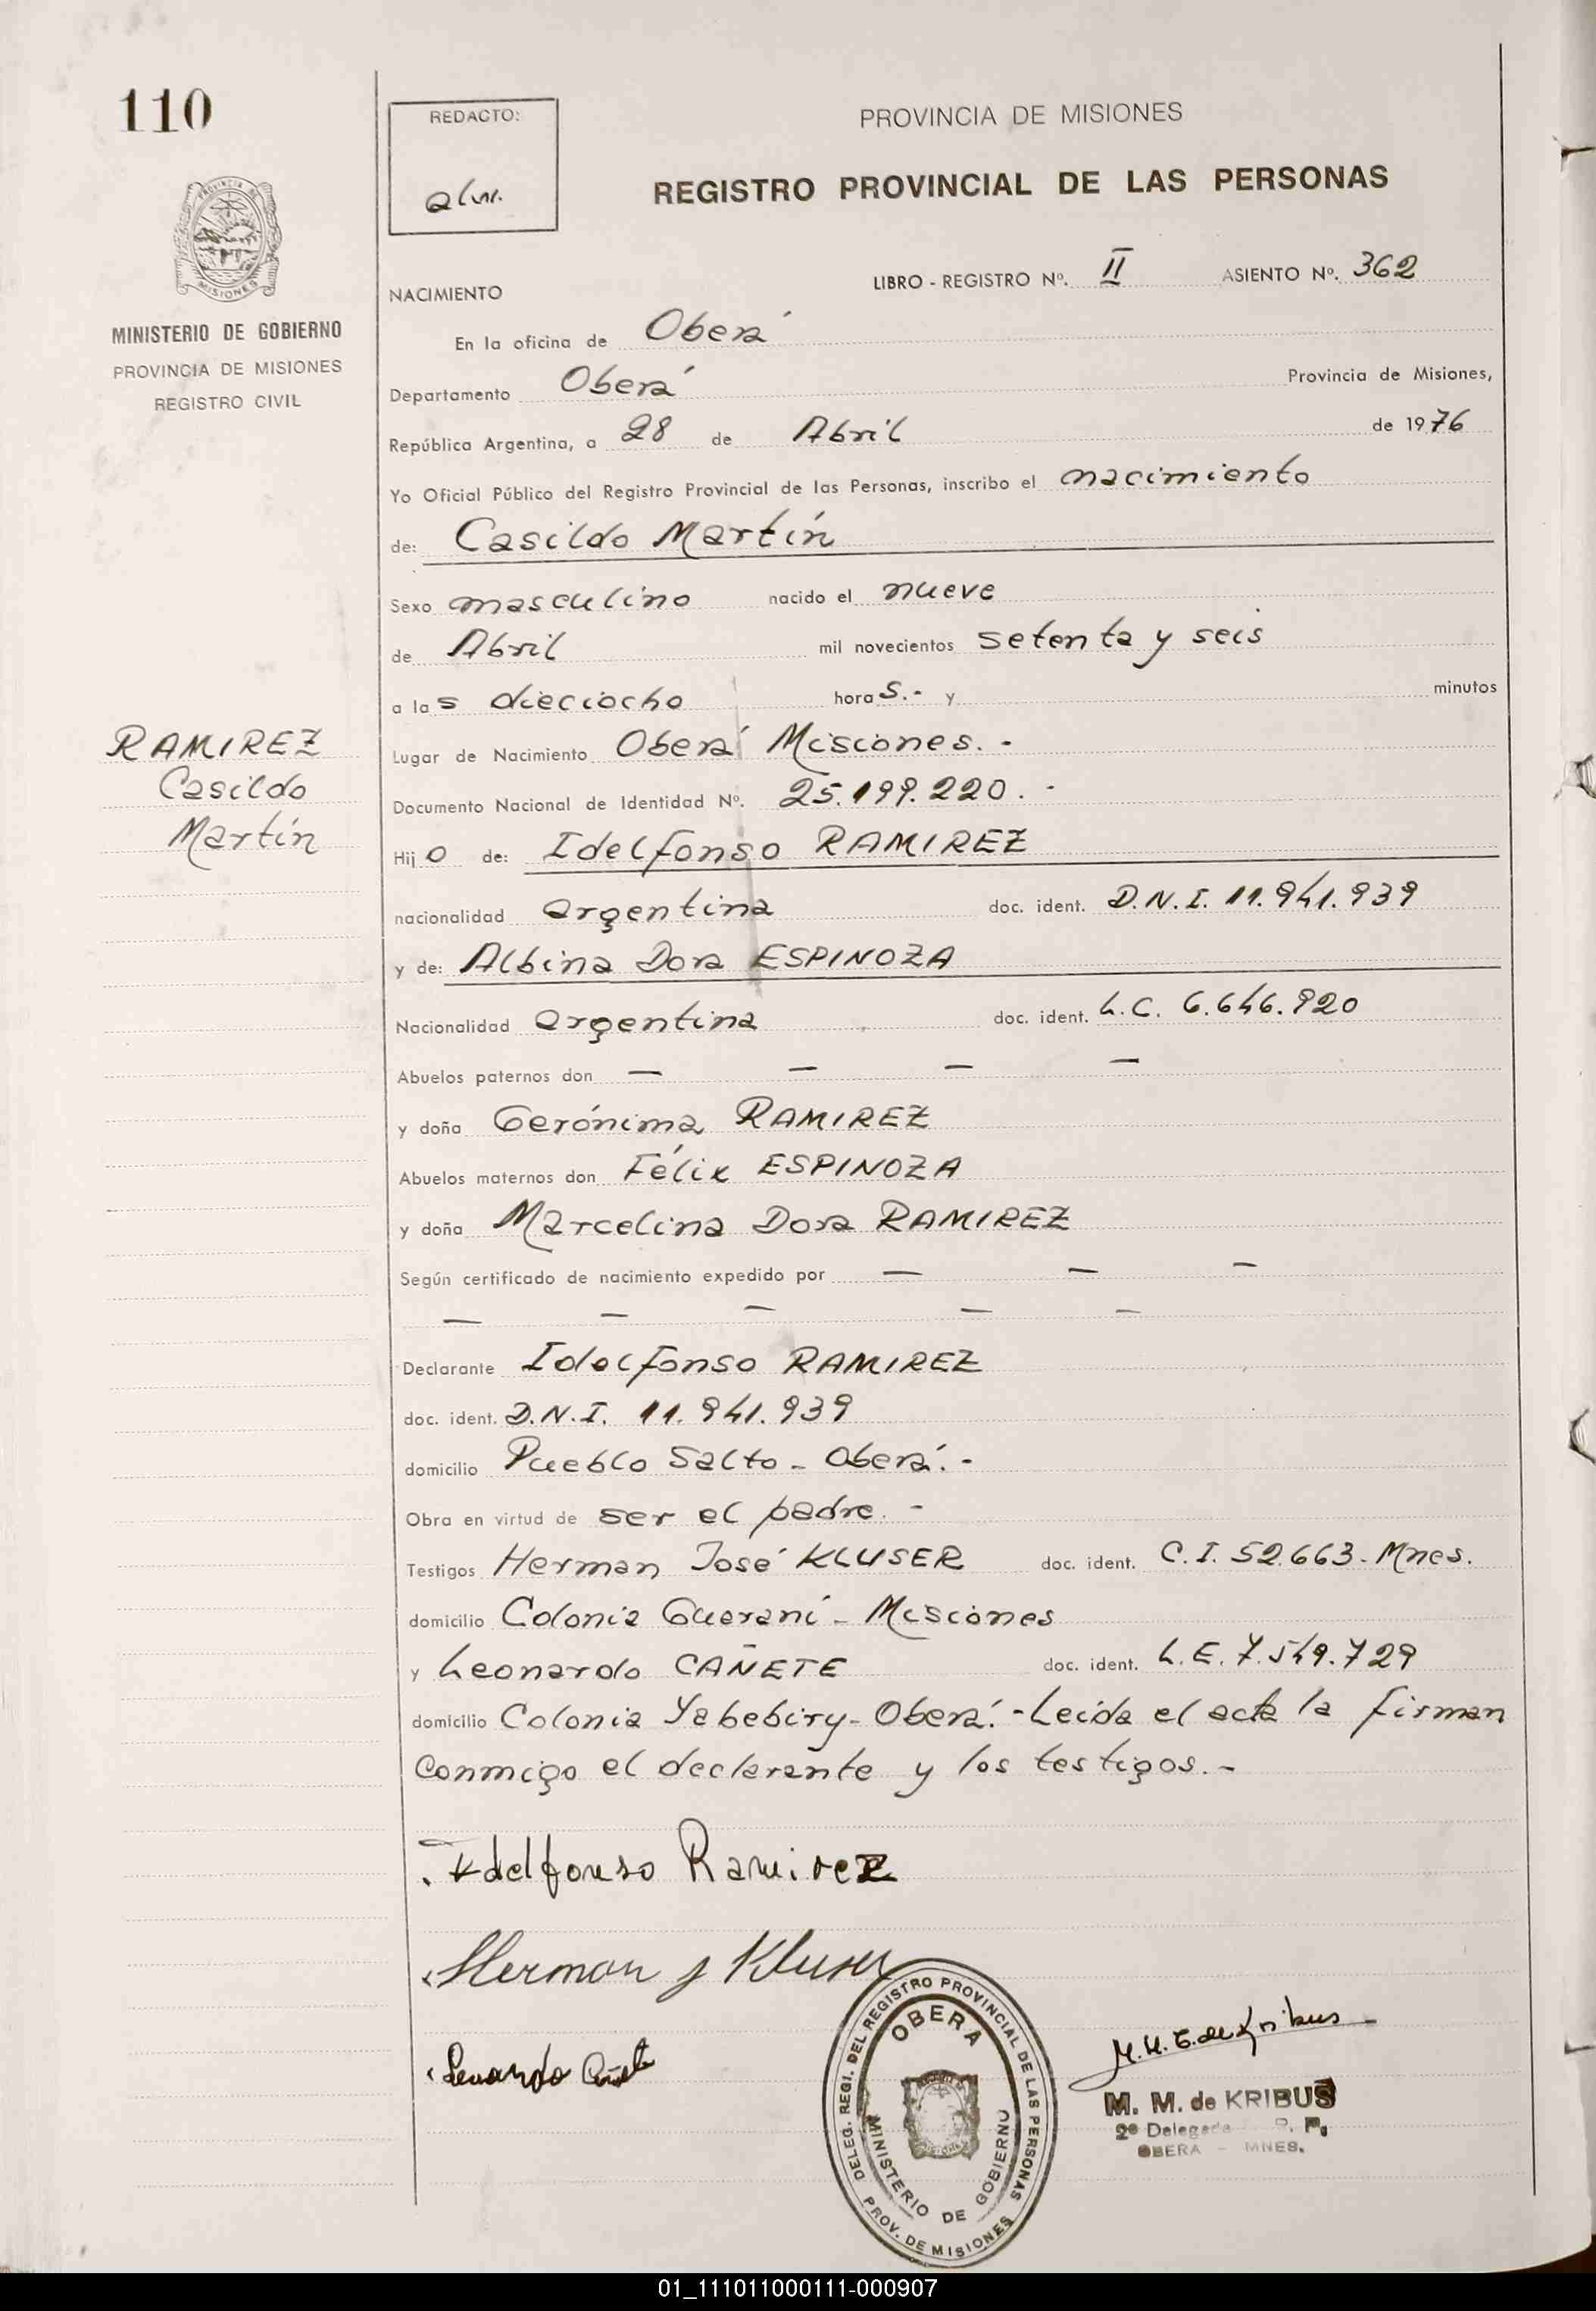 110
REDACTO:
PROVINCIA DE MISIONES
REGISTRO PROVINCIAL DE LAS PERSONAS
PROVINCIA DE
MISIONES
MINISTERIO DE GOBIERNO
PROVINCIA DE MISIONES
REGISTRO CIVIL
LIBRO - REGISTRO Nº. II ASIENTO Nº. 362
NACIMIENTO
En la oficina de Oberá
Departamento Oberá Provincia de Misiones,
República Argentina, a 28 de Abril de 1976
Yo Oficial Público del Registro Provincial de las Personas, inscribo el nacimiento
de: Casildo Martín
Sexo masculino nacido el nueve
de Abril mil novecientos setenta y seis
a las dieciocho horas.- y minutos
Lugar de Nacimiento Oberá Misiones.-
Documento Nacional de Identidad Nº. 25.199.220.-
RAMIREZ
Casildo
Martín
Hijo de: Idelfonso RAMIREZ
nacionalidad argentina doc. ident. D.N.I. 11.941.939
y de: Albina Dora ESPINOZA
Nacionalidad argentina doc. ident. L.C. 6.646.920
Abuelos paternos don — — — —
y doña Gerónima RAMIREZ
Abuelos maternos don Félix ESPINOZA
y doña Marcelina Dora RAMIREZ
Según certificado de nacimiento expedido por — — —
— — — — —
Declarante Idelfonso RAMIREZ
doc. ident. D.N.I. 11.941.939
domicilio Pueblo Salto - Oberá.-
Obra en virtud de ser el padre.-
Testigos Herman José KLUSER doc. ident. C.I. 52.663- Mnes.
domicilio Colonia Guaraní - Misiones
y Leonardo CAÑETE doc. ident. L.E. 7.549.729
domicilio Colonia Yabebiry - Oberá.- Leída el acta la firman
conmigo el declarante y los testigos.-
Idelfonso Ramirez
Herman J Kluser
Leonardo Cañete
DELEG. REGI. DEL REGISTRO PROVINCIAL DE LAS PERSONAS
OBERA
MINISTERIO DE GOBIERNO
PROV. DE MISIONES
M. M. de Kribus
M. M. de KRIBUS
2º P.
OBERA - MNES.
01_111011000111-000907